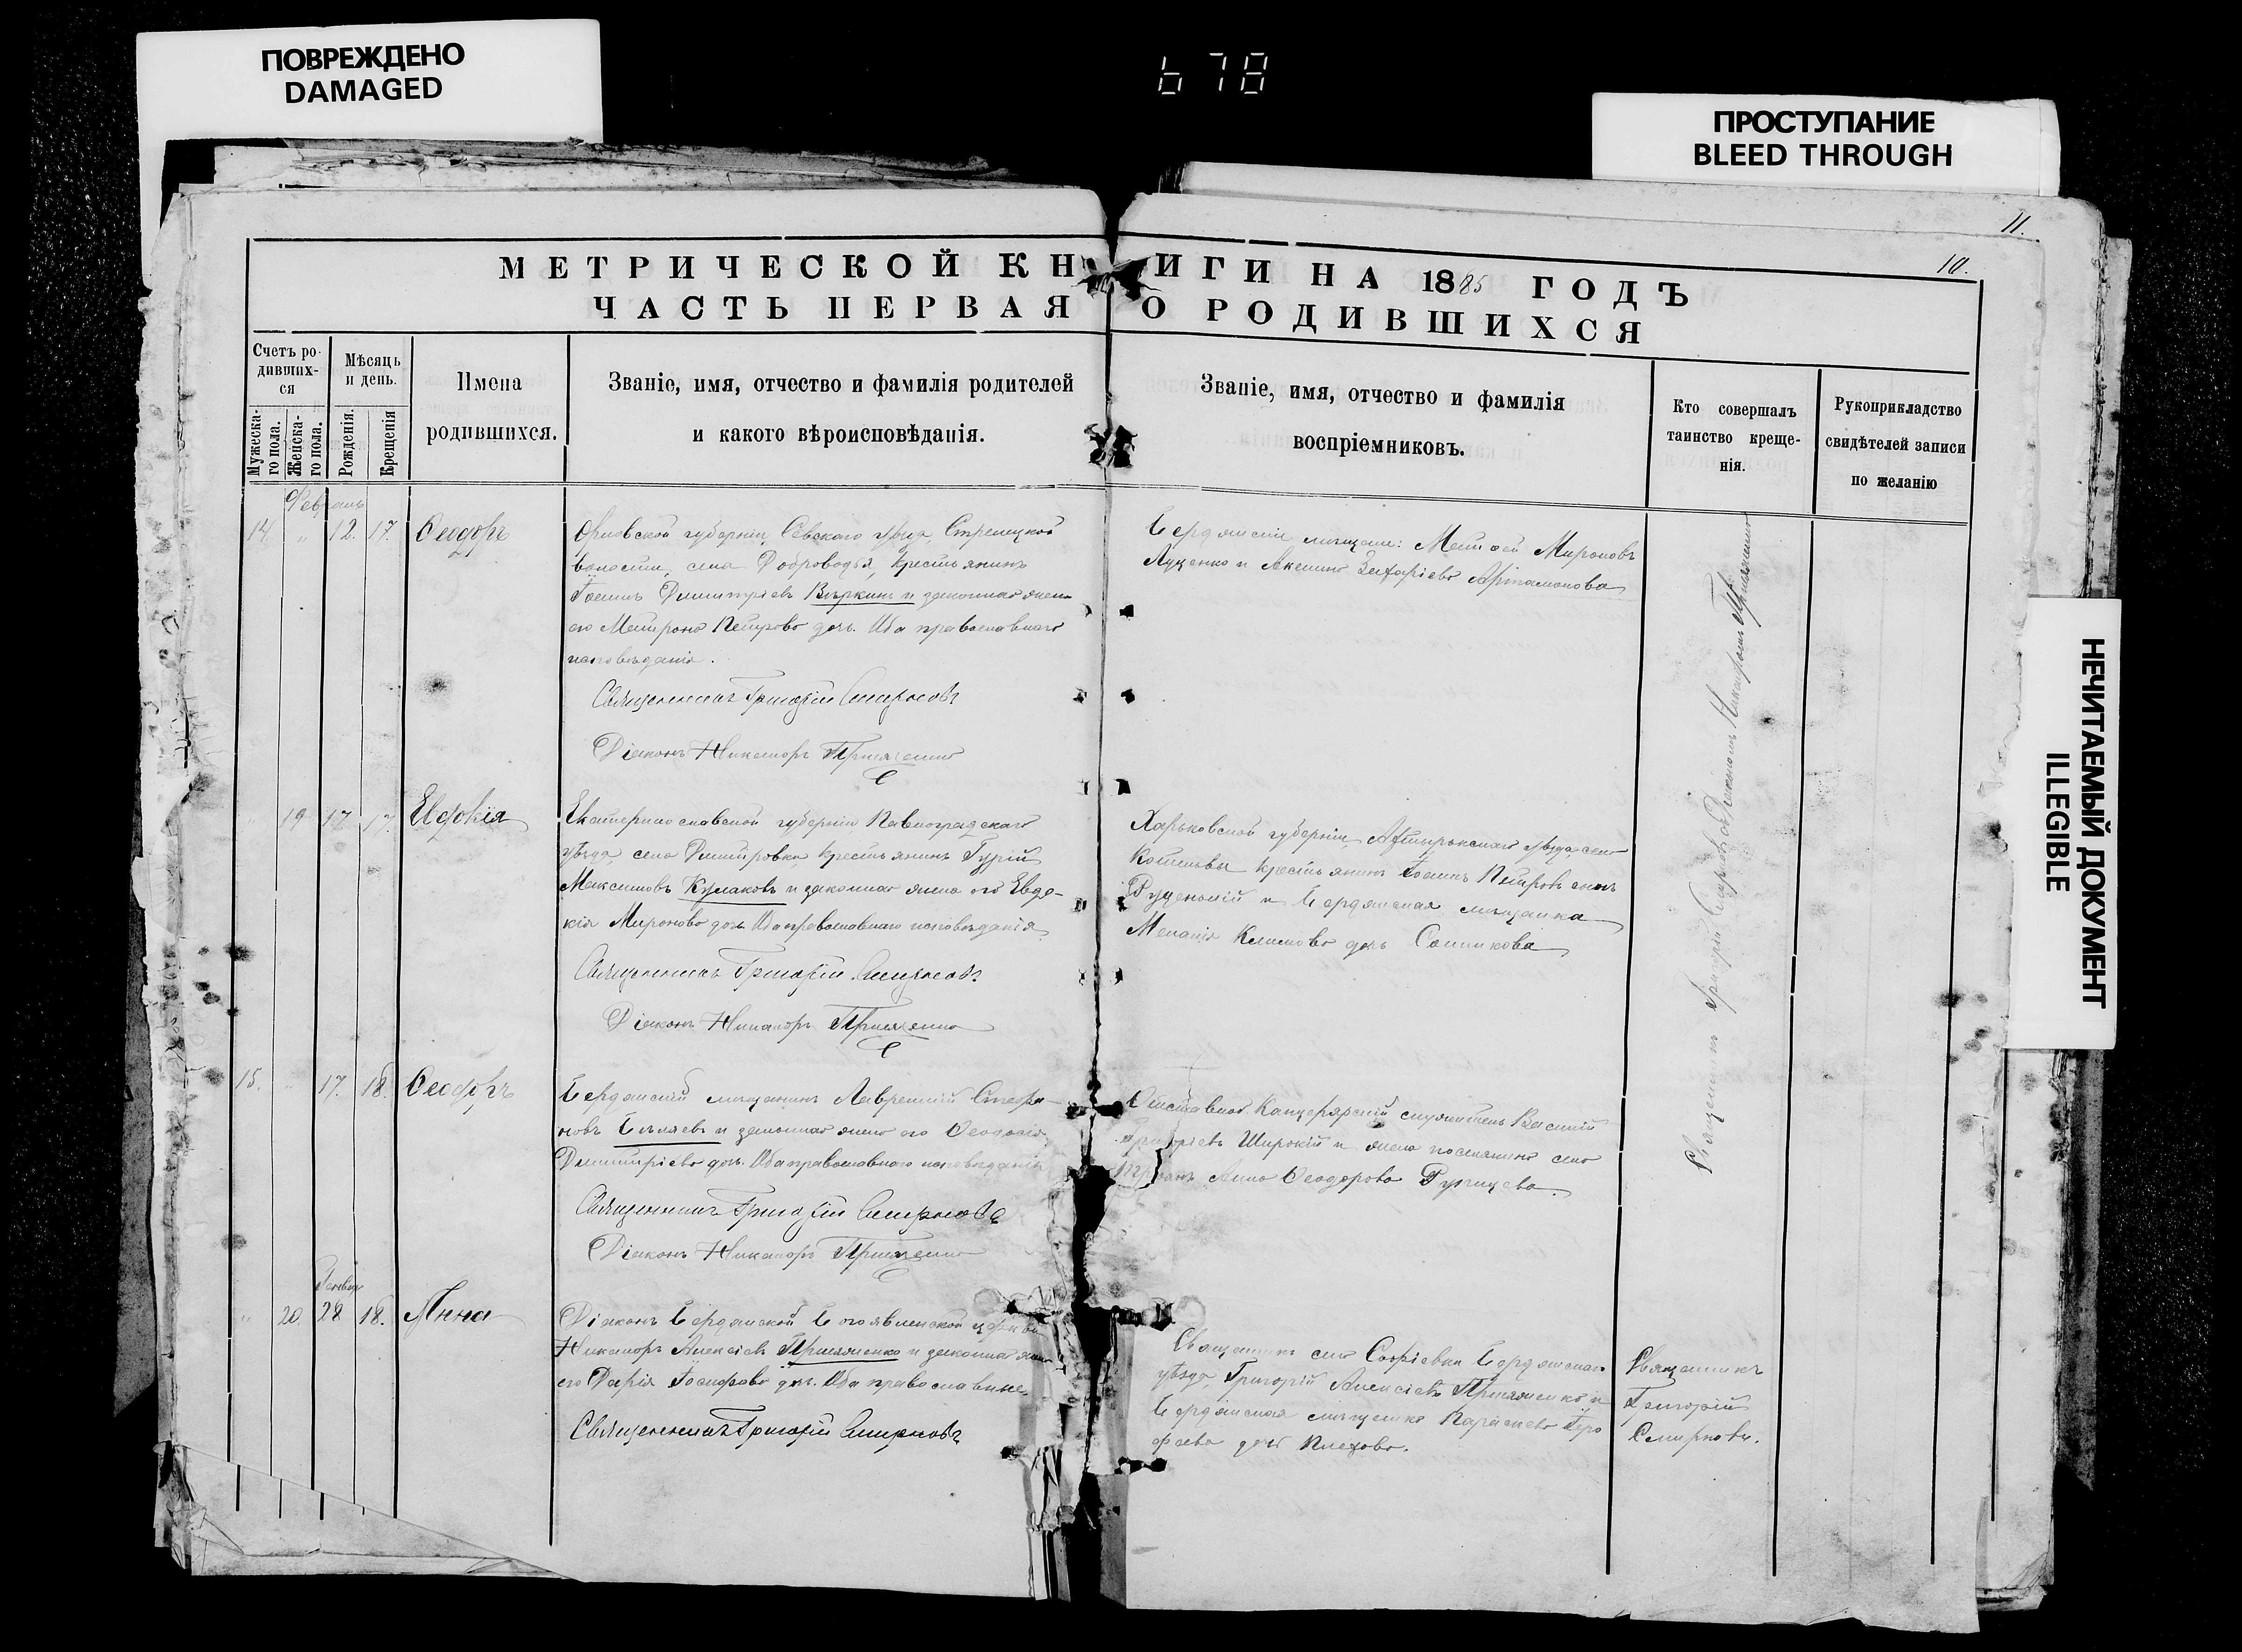 ПОВРЕЖДЕНО
DAMAGED
678
ПРОСТУПАНИЕ
BLEED THROUGH
11.
10.
МЕТРИЧЕСКОЙ КНИГИ НА 1885 ГОДЪ
ЧАСТЬ ПЕРВАЯ О РОДИВШИХСЯ
Счетъ ро-
дивших-
ся
Мужеска-
го пола.
Женска-
го пола.
Мѣсяцъ
и день.
Рожденія.
Крещенія
Имена
родившихся.
Званіе, имя, отчество и фамилія родителей
и какого вѣроисповѣданія.
Званіе, имя, отчество и фамилія
воспріемниковъ.
Кто совершалъ
таинство креще-
нія.
Рукоприкладство
свидѣтелей записи
по желанію
Февраль
14. " 12. 17. Ѳеодоръ
Орловской губерніи, Сѣвскаго уѣзда, Стрелецкой
волости, села Доброводья, крестьянинъ
Іоаннъ Димитріевъ Вѣркинъ и законная жена
его Матрона Петрова дочь. Оба православнаго
исповѣданія.
Священникъ Григорій Смирновъ
Діаконъ Никаноръ Прияженко
Бердянскіе мѣщане: Матѳей Мироновъ
Луценко и Акилина Захаріева Артамонова
19 17 17. Евдокія
Екатеринославской губерніи Павлоградскаго
уѣзда, села Дмитровки крестьянинъ Гурій
Максимовъ Кулаковъ и законная жена его Евдо-
кія Миронова дочь Оба православнаго исповѣданія
Священникъ Григорій Смирновъ
Діаконъ Никаноръ Прияженко
Харьковской губерніи, Ахтырскаго уѣзда, села
крестьянинъ Іоаннъ Петровъ сынъ
Руденькій и Бердянская мѣщанка
Меланія Климова дочь Сошникова
15. " 17. 18. Ѳеодоръ
Бердянскій мѣщанинъ Лаврентій Стефа-
новъ Бѣляевъ и законная жена его Ѳеодосія
Димитріева дочь. Оба православнаго исповѣданія
Священникъ Григорій Смирновъ
Діаконъ Никаноръ Прияженко
Отставной Канцелярскій служитель Василій
Григоріевъ Широкій и жена поселянина села
Анна Ѳеодорова
Январь
" 20. 28 18. Анна
Діаконъ Бердянской Богоявленской церкви
Никаноръ Алексіевъ Прияженко и законная жена
его Дарія Іосифова дочь. Оба православные
Священникъ Григорій Смирновъ
Священникъ села Софіевки Бердянскаго
уѣзда, Григорій Алексіевъ Прияженко и
Бердянская мѣщанка Параскева
дочь Плехова.
Священникъ
Григорій
Смирновъ.
Священникъ Григорій Смирновъ съ Діакономъ Никаноромъ Прияженко
НЕЧИТАЕМЫЙ ДОКУМЕНТ
ILLEGIBLE